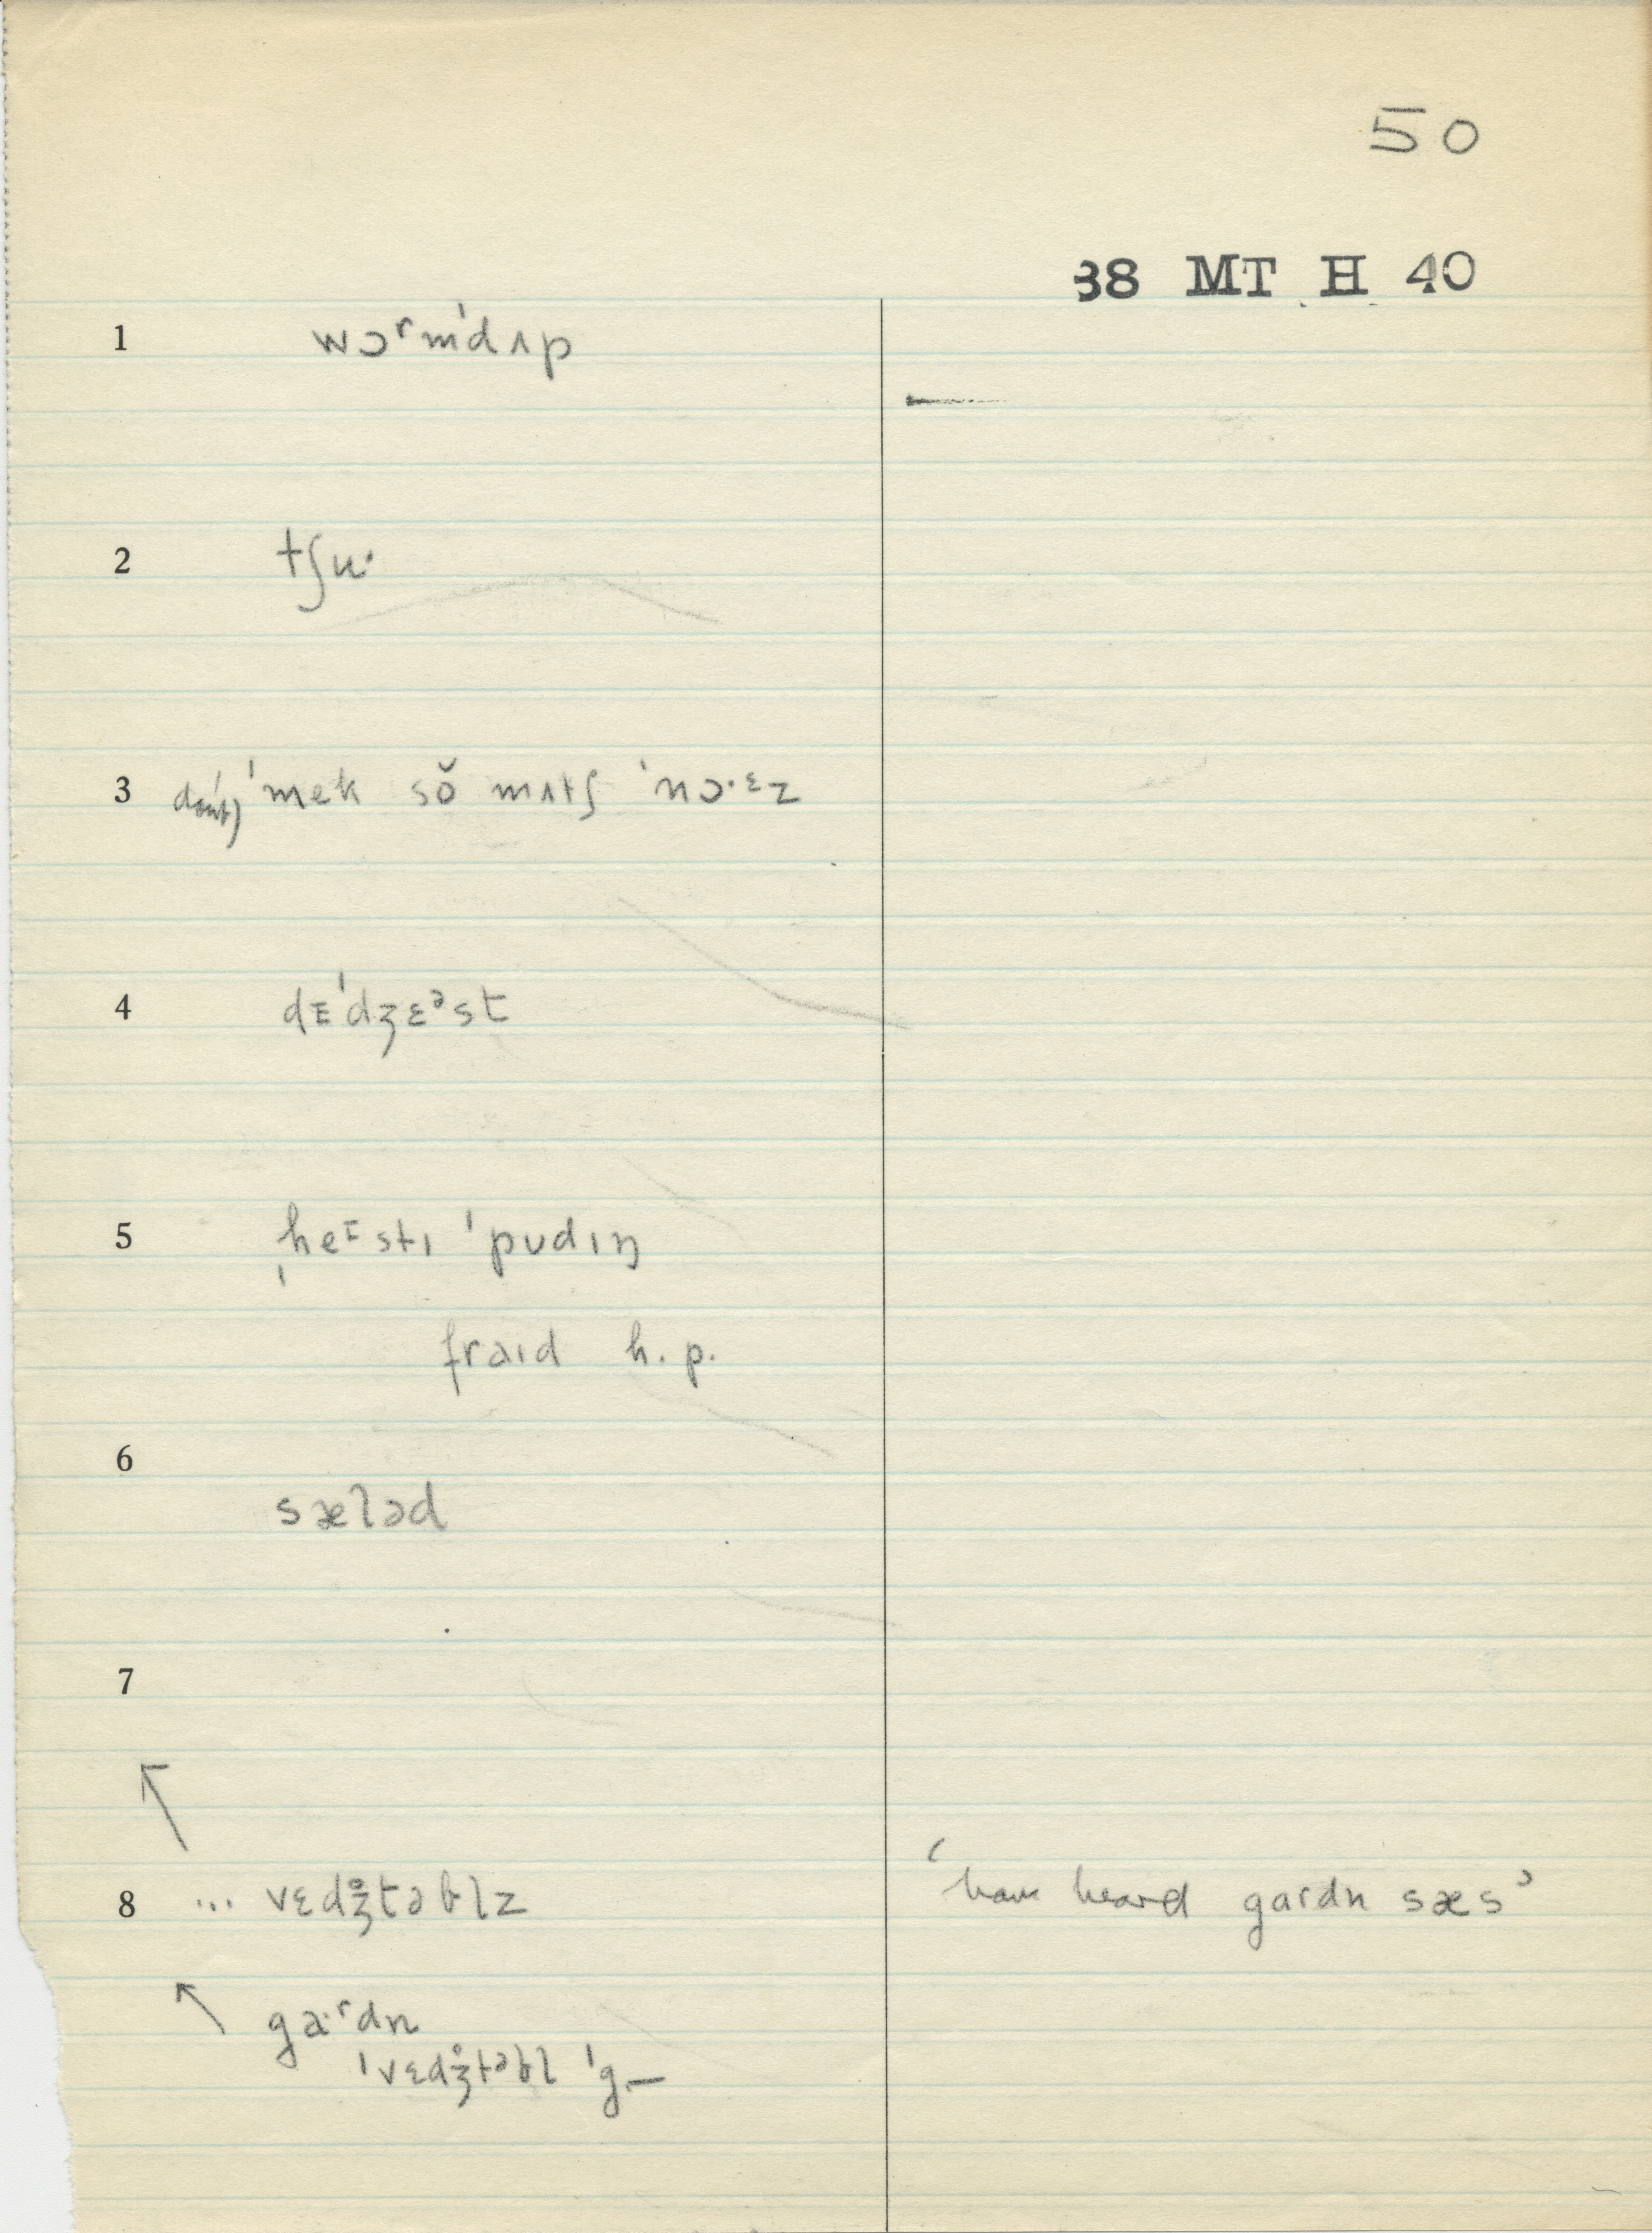 50
38 MT H 40
1 wɔʳm'dʌp
2 tʃu·
3 dount) 'mek sŏ mʌtʃ 'nɔ·ᵋz
4 dɪ'dʒɛᵊst
5 ˌheᶦstɪ 'pʊdɪŋ
fraɪd h.p.
6 sæləd
7
8 ... vɛdʒ̊təblz ‘have heard gardn sæs’
ga·ʳdn
'vɛdʒ̊təbl 'g.—